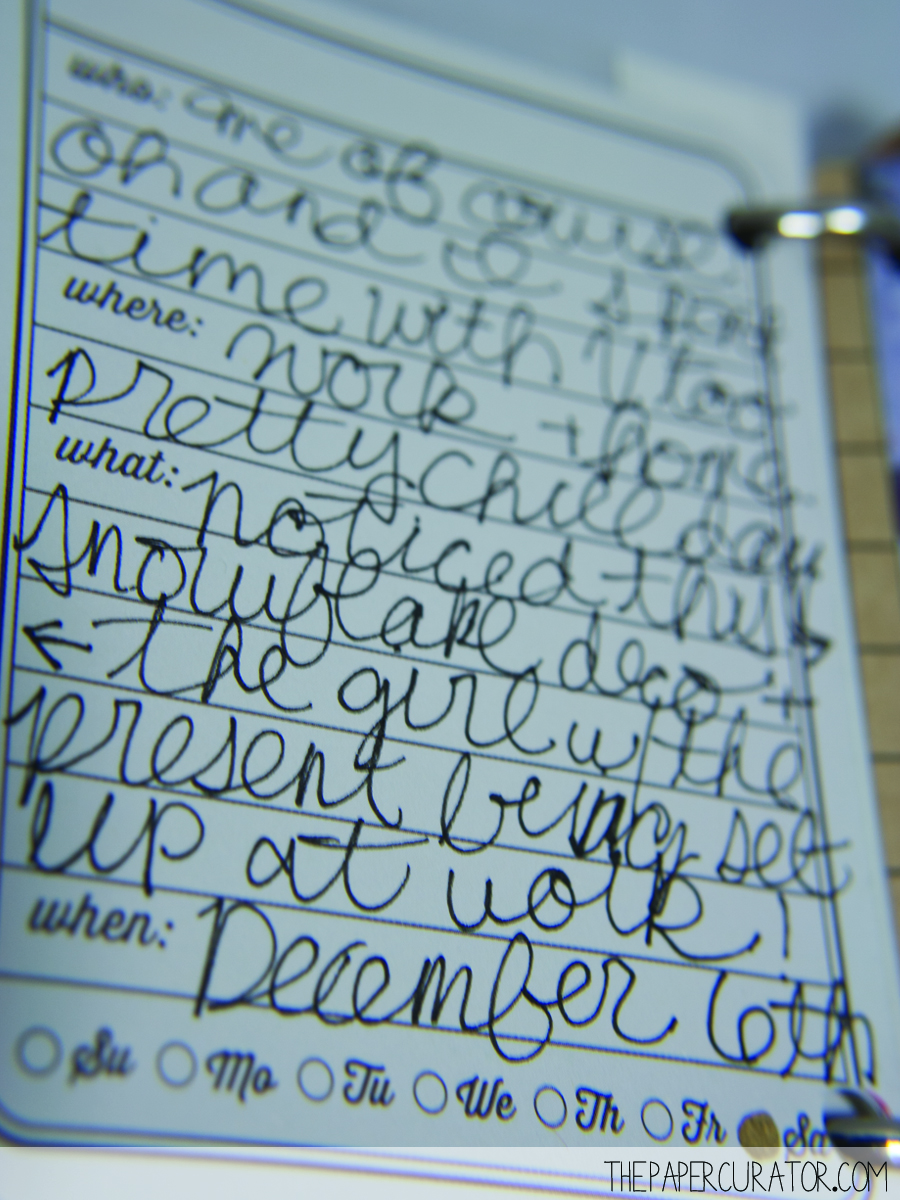 who: me of course
oh and I spent
time with V too
where: work + home
pretty chill day
what: noticed this →
snowflake deco +
← the girl w/ the
present being set
up at work!
when: December 6th
Su Mo Tu We Th Fr Sa
THEPAPERCURATOR.COM